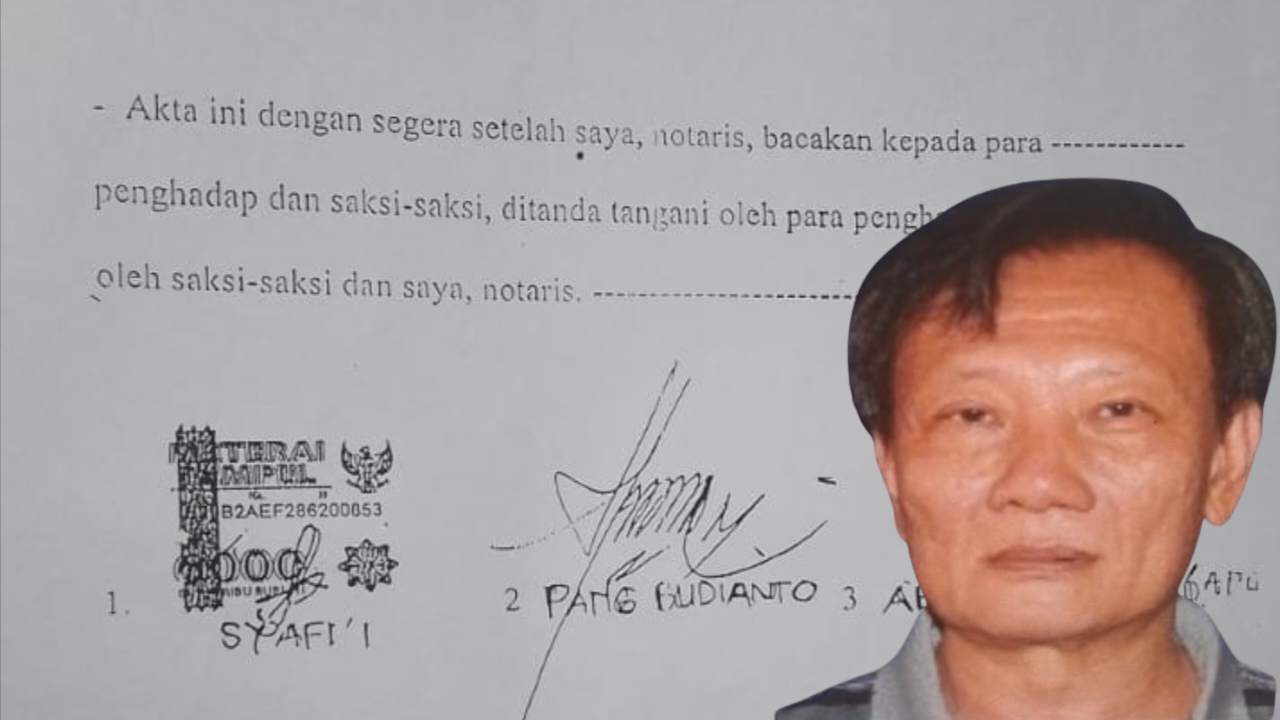 - Akta ini dengan segera setelah saya, notaris, bacakan kepada para ------------
penghadap dan saksi-saksi, ditanda tangani oleh para
oleh saksi-saksi dan saya, notaris. ------------------------
METERAI
TEMPEL
B2AEF286200853
1. 2 PANG BUDIANTO 3
SYAFI'I